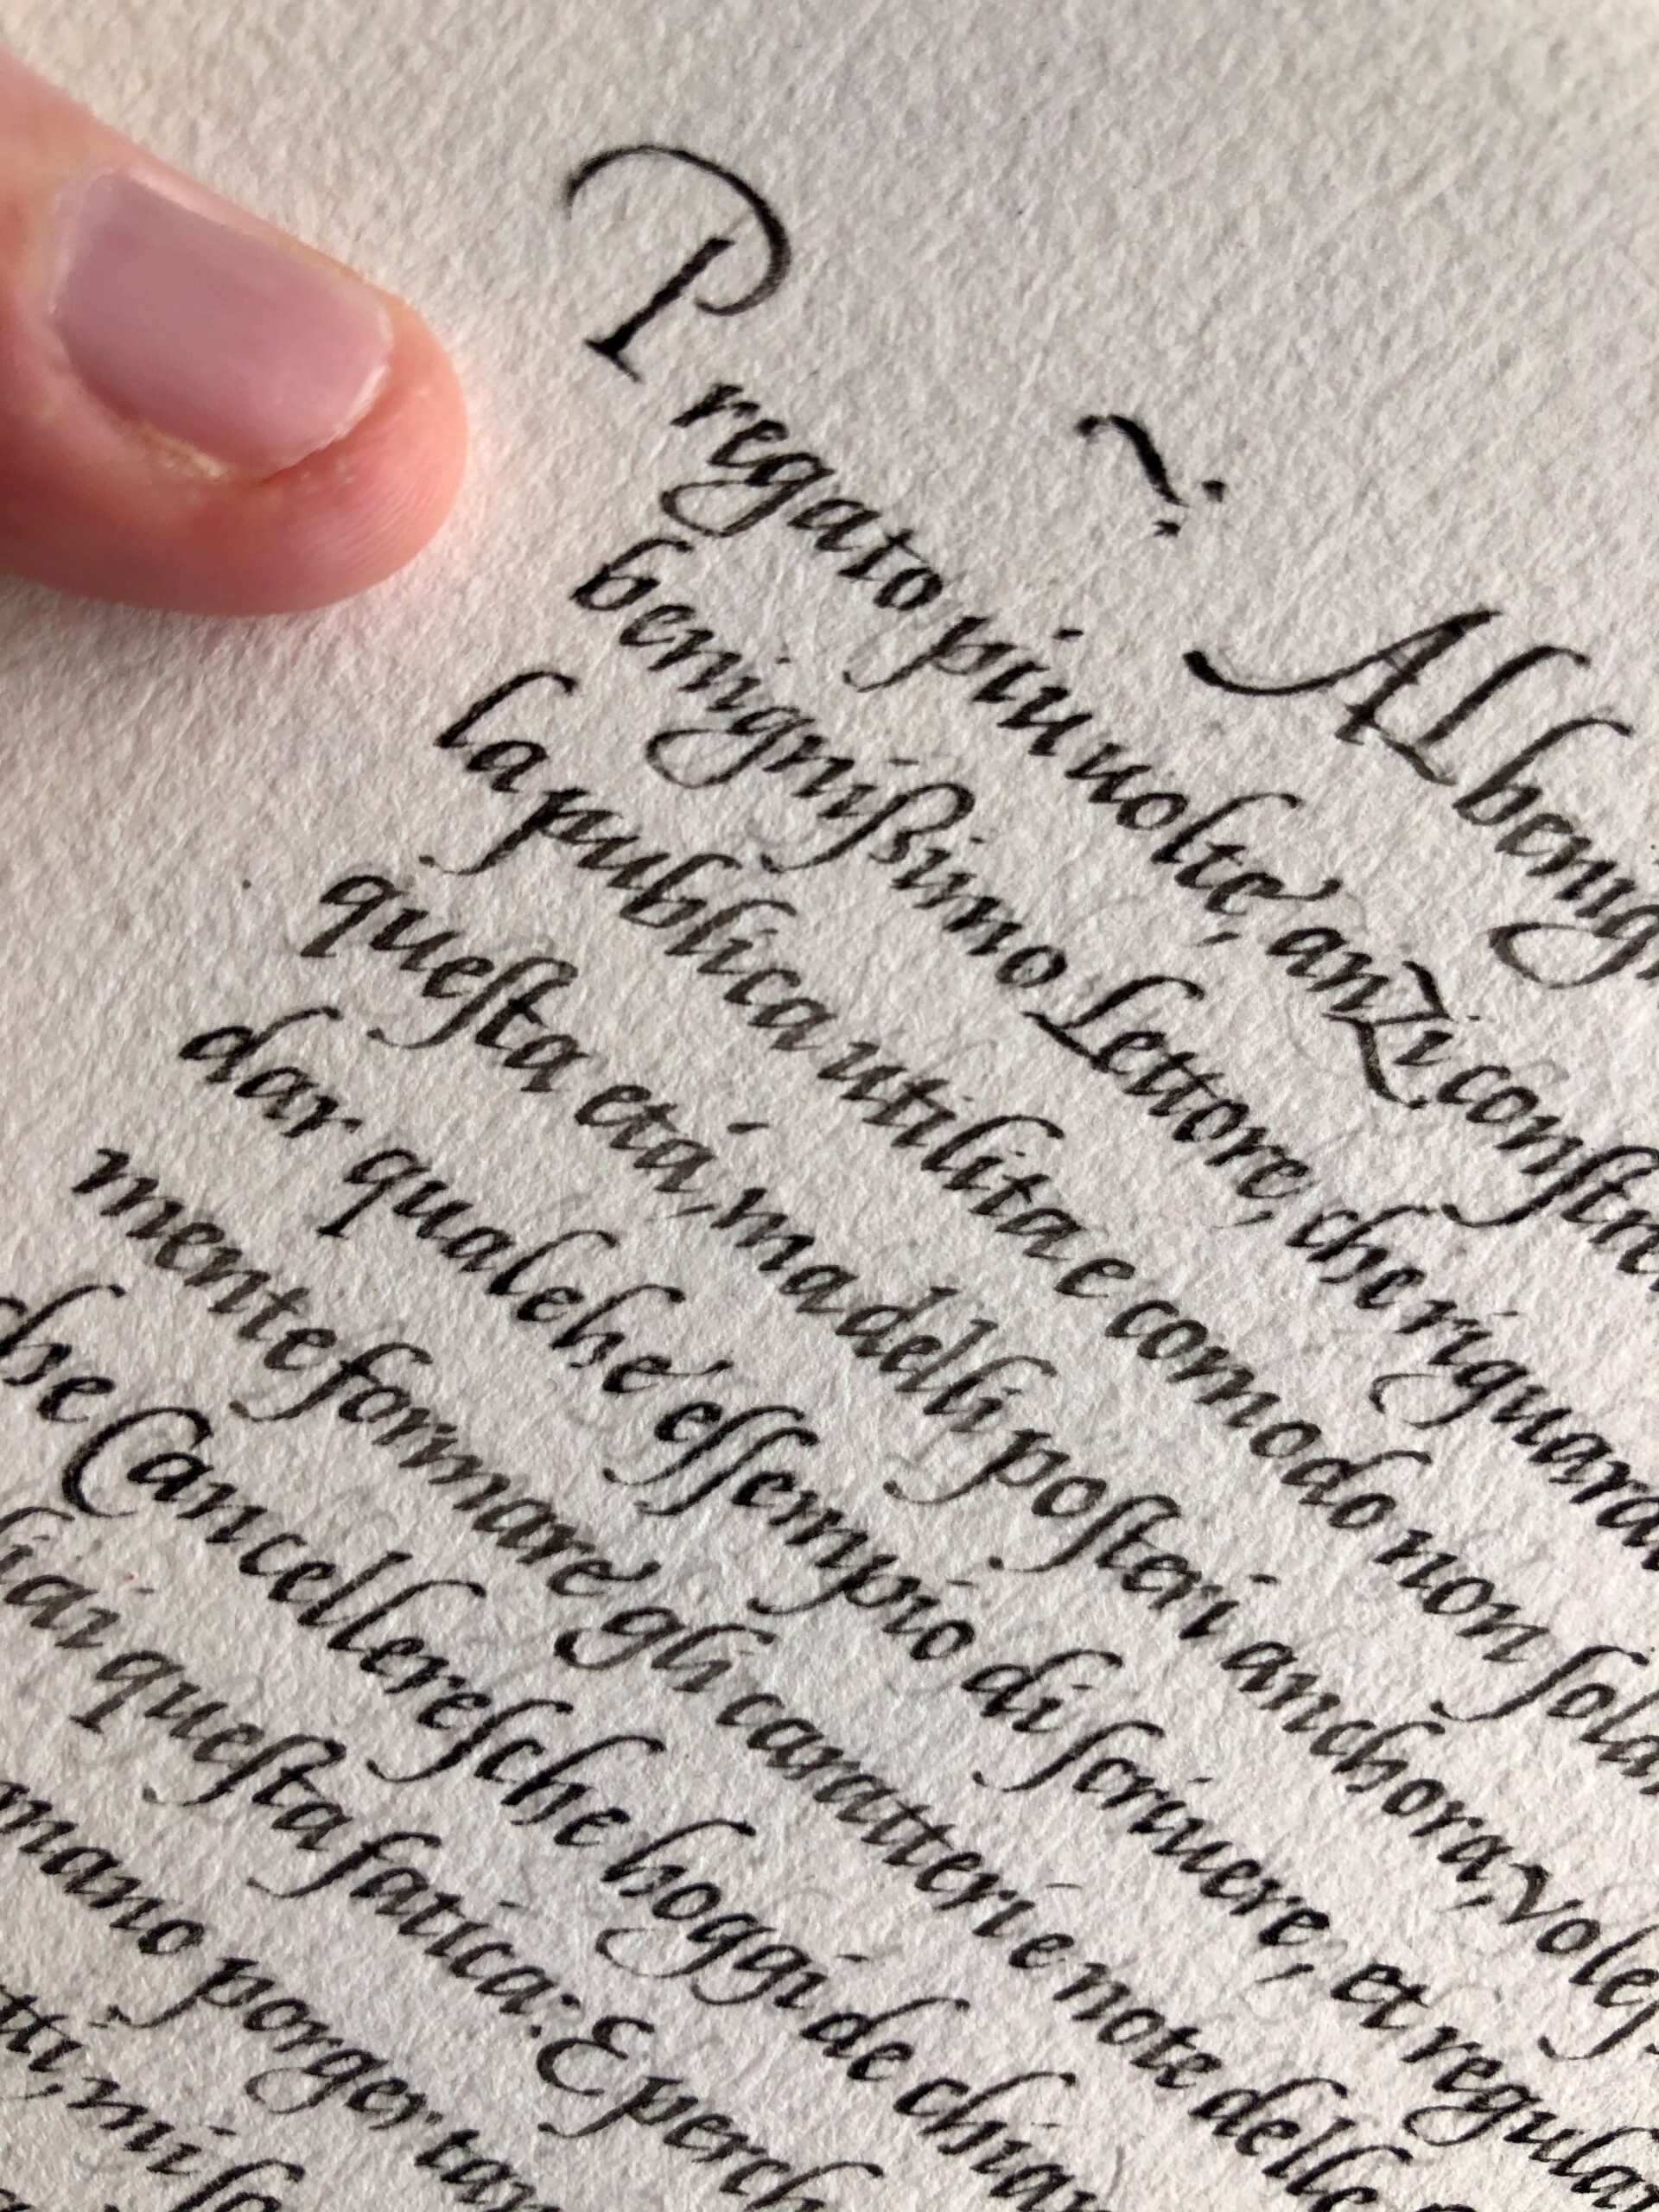 Al benig
Pregato piu uolte, anzi constre
benignißimo Lettore, che riguarda
la publica utilita e comodo non solam
questa etá, ma delli posteri anchora, voles
dar qualche essempio di scriuere, et regular
mente formare gli caratteri e note delle
che Cancelleresche hoggi de chiam
liai questa fatica: E perch
mano porger tan
tti, mi so